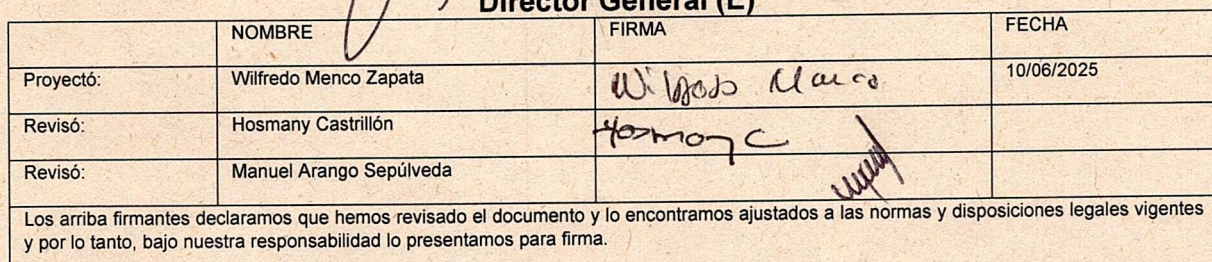 Director General (E)
NOMBRE FIRMA FECHA
Proyectó: Wilfredo Menco Zapata Wilfredo Menco 10/06/2025
Revisó: Hosmany Castrillón Hosmany C
Revisó: Manuel Arango Sepúlveda
Los arriba firmantes declaramos que hemos revisado el documento y lo encontramos ajustados a las normas y disposiciones legales vigentes
y por lo tanto, bajo nuestra responsabilidad lo presentamos para firma.